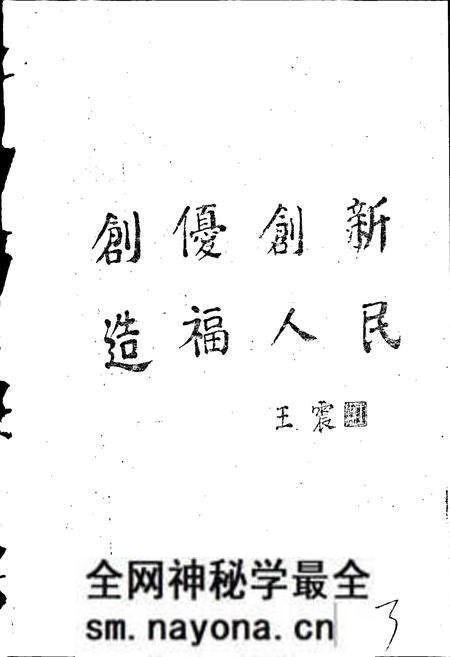 創優創新
造福人民
王震
全网神秘学最全
sm.nayona.cn
了